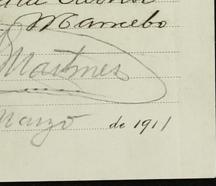 Mancebo
Martinez
Marzo de 1911